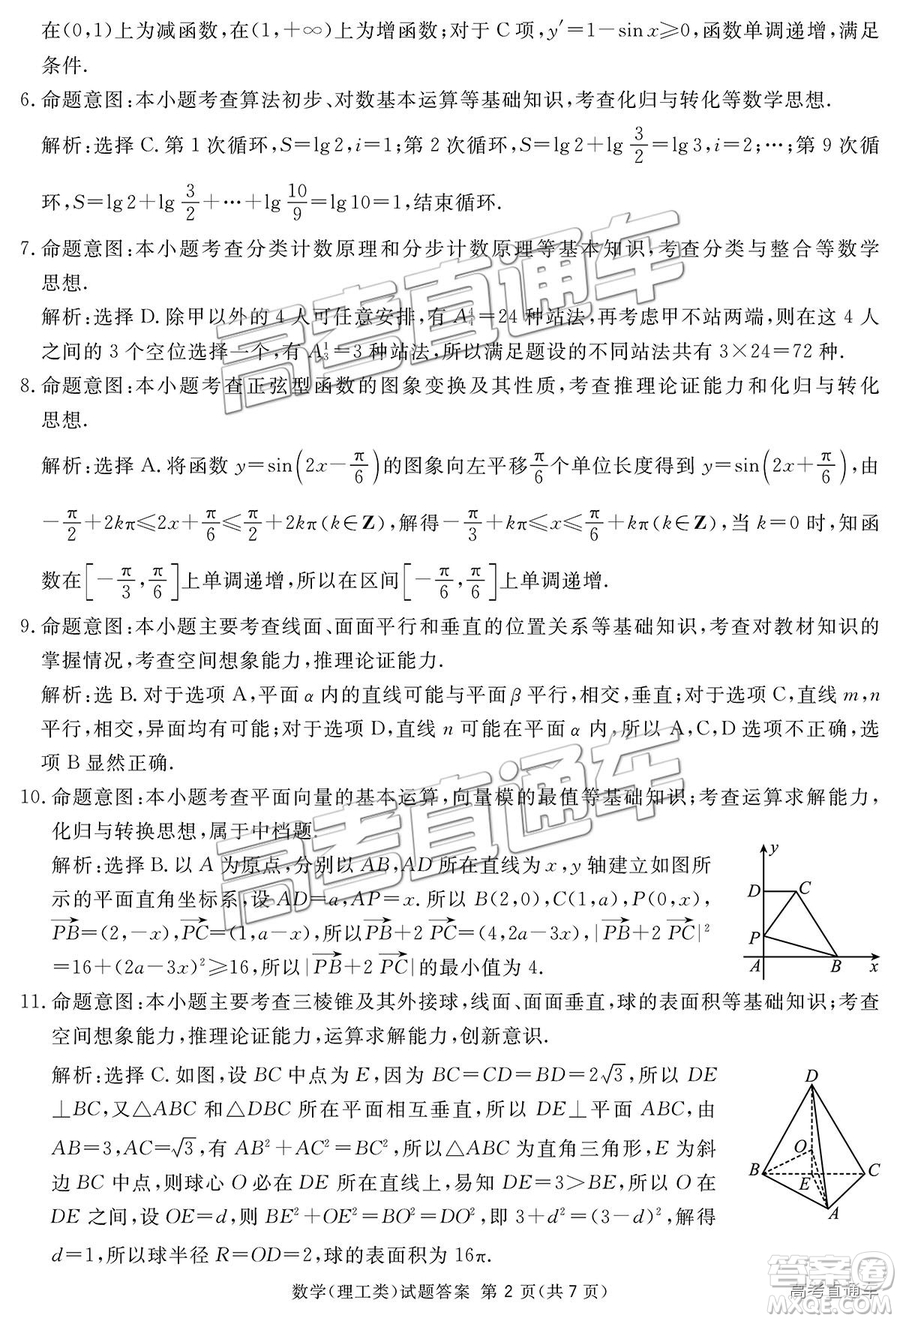 在(0,1)上为减函数,在(1,+∞)上为增函数;对于 C 项,y′=1-sin x≥0,函数单调递增,满足
条件.
6. 命题意图:本小题考查算法初步、对数基本运算等基础知识,考查化归与转化等数学思想.
解析:选择 C. 第 1 次循环,S=lg 2,i=1;第 2 次循环,S=lg 2+lg 3/2=lg 3,i=2;…;第 9 次循
环,S=lg 2+lg 3/2+…+lg 10/9=lg 10=1,结束循环.
7. 命题意图:本小题考查分类计数原理和分步计数原理等基本知识,考查分类与整合等数学
思想.
解析:选择 D. 除甲以外的 4 人可任意安排,有 A₄⁴=24 种站法,再考虑甲不站两端,则在这 4 人
之间的 3 个空位选择一个,有 A₃¹=3 种站法,所以满足题设的不同站法共有 3×24=72 种.
8. 命题意图:本小题考查正弦型函数的图象变换及其性质,考查推理论证能力和化归与转化
思想.
解析:选择 A. 将函数 y=sin(2x-π/6)的图象向左平移π/6个单位长度得到 y=sin(2x+π/6),由
-π/2+2kπ≤2x+π/6≤π/2+2kπ(k∈Z),解得-π/3+kπ≤x≤π/6+kπ(k∈Z),当 k=0 时,知函
数在[-π/3,π/6]上单调递增,所以在区间[-π/6,π/6]上单调递增.
9. 命题意图:本小题主要考查线面、面面平行和垂直的位置关系等基础知识,考查对教材知识的
掌握情况,考查空间想象能力,推理论证能力.
解析:选 B. 对于选项 A,平面 α 内的直线可能与平面 β 平行,相交,垂直;对于选项 C,直线 m,n
平行,相交,异面均有可能;对于选项 D,直线 n 可能在平面 α 内,所以 A,C,D 选项不正确,选
项 B 显然正确.
10. 命题意图:本小题考查平面向量的基本运算,向量模的最值等基础知识;考查运算求解能力,
化归与转换思想,属于中档题.
解析:选择 B. 以 A 为原点,分别以 AB,AD 所在直线为 x,y 轴建立如图所
示的平面直角坐标系,设 AD=a,AP=x. 所以 B(2,0),C(1,a),P(0,x),
PB=(2,-x),PC=(1,a-x),所以PB+2 PC=(4,2a-3x),|PB+2 PC|²
=16+(2a-3x)²≥16,所以|PB+2 PC|的最小值为 4.
y
D C
P
A B x
11. 命题意图:本小题主要考查三棱锥及其外接球,线面、面面垂直,球的表面积等基础知识;考查
空间想象能力,推理论证能力,运算求解能力,创新意识.
解析:选择 C. 如图,设 BC 中点为 E,因为 BC=CD=BD=2√3,所以 DE
⊥BC,又△ABC 和△DBC 所在平面相互垂直,所以 DE⊥平面 ABC,由
AB=3,AC=√3,有 AB²+AC²=BC²,所以△ABC 为直角三角形,E 为斜
边 BC 中点,则球心 O 必在 DE 所在直线上,易知 DE=3>BE,所以 O 在
DE 之间,设 OE=d,则 BE²+OE²=BO²=DO²,即 3+d²=(3-d)²,解得
d=1,所以球半径 R=OD=2,球的表面积为 16π.
D
O
B E C
A
数学(理工类)试题答案 第 2 页(共 7 页)
高考直通车
高考直通车
答案圈
MXQE.COM
高考直通车